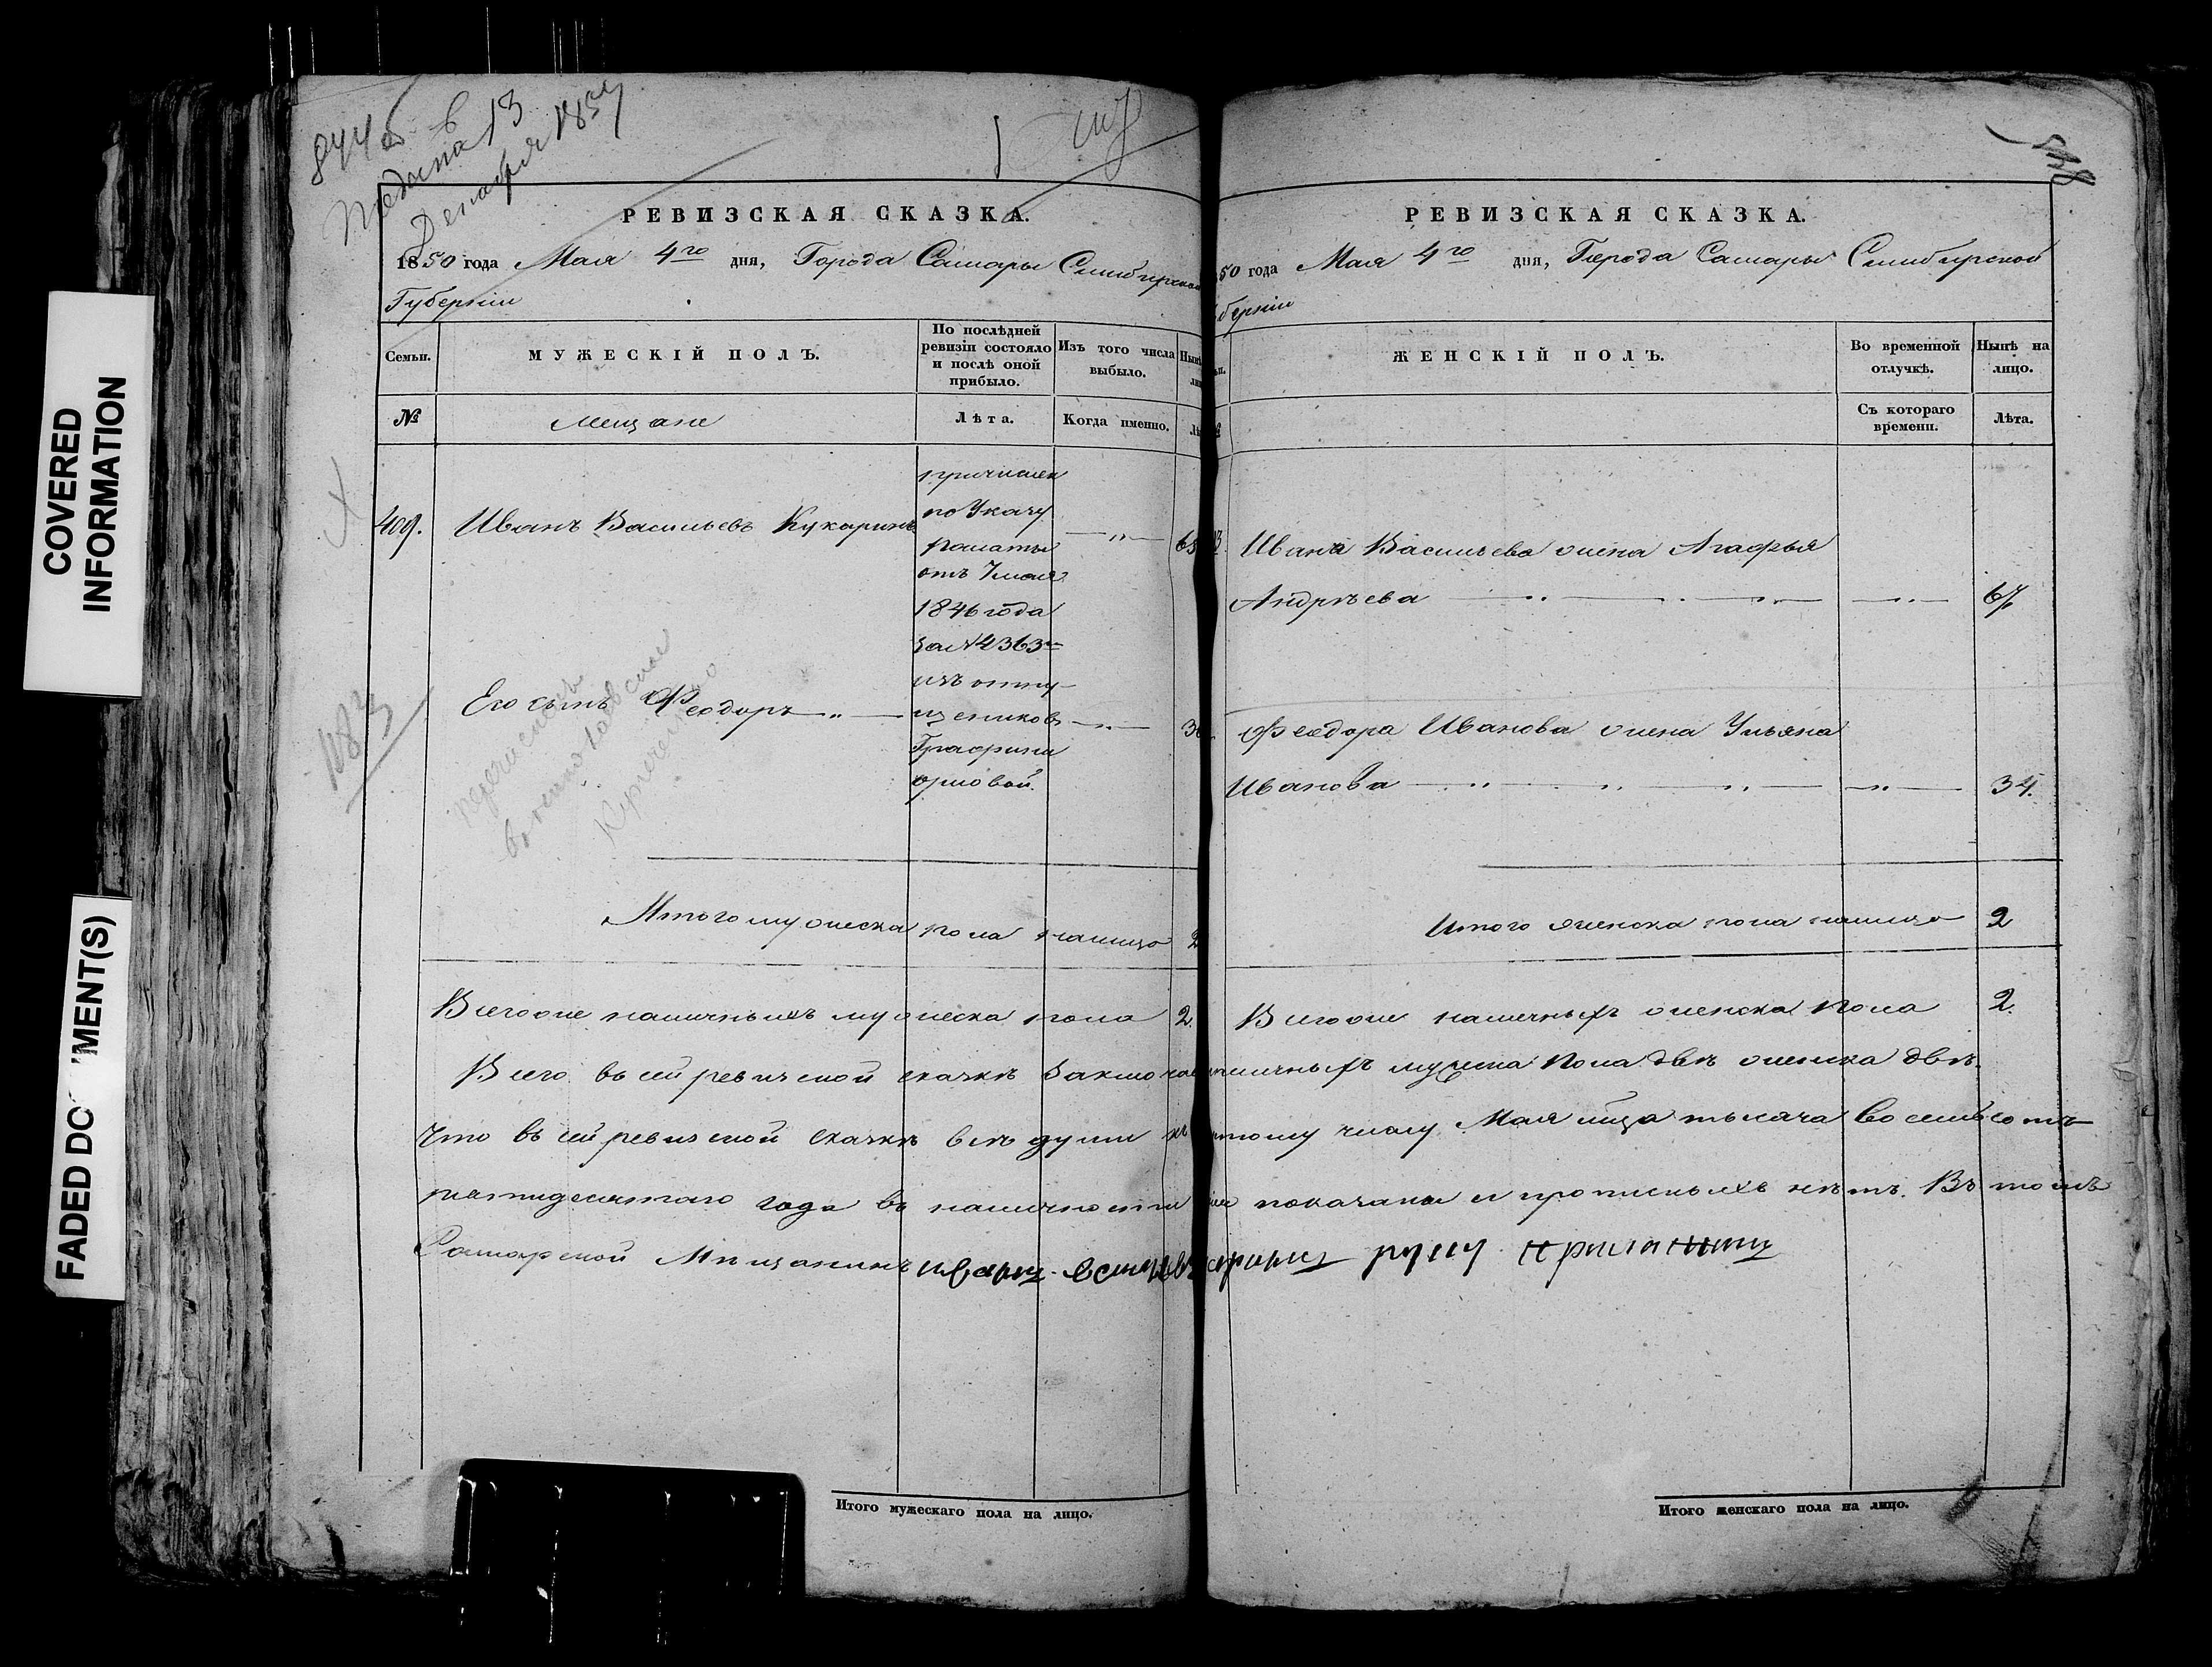 COVERED
INFORMATION
FADED DOCUMENT(S)
844
13
Декабря 1857
РЕВИЗСКАЯ СКАЗКА.
1850 года Мая 4го дня, Города Самары Симбирской
Губернiи
Семьи.
МУЖЕСКIЙ ПОЛЪ.
По послѣдней
ревизiи состояло
и послѣ оной
прибыло.
Изъ того числа
выбыло.
№
Мещане
Лѣта.
Когда именно.
409.
Иванъ Васильевъ Кукаринъ
причислен
по Указу
палаты
отъ 7 мая
1846 года
за № 2363м
изъ отпу-
щеников
Графини
орловой.
65
Его сынъ Феодоръ
Итого мужеска пола налицо 2
Всегоже наличныхъ мужеска пола 2.
РЕВИЗСКАЯ СКАЗКА.
50 года Мая 4го дня, Города Самары Симбирской
бернiи
ЖЕНСКIЙ ПОЛЪ.
Во временной
отлучкѣ.
Нынѣ на
лицо.
Съ котораго
времени.
Лѣта.
Ивана Васильева жена Агафья
Андрѣева 67.
Феодора Иванова жена Ульяна
Иванова 34.
Итого женска пола налицо 2
Всегоже наличныхъ женска пола 2.
Всего въ сей ревизской сказкѣ наличныхъ мужеска пола двѣ женска двѣ.
Что въ сей ревизской сказкѣ всѣ души къ числу Мая мѣца тысяча восемьсотъ
пятидесятаго года въ наличности показаны и прописныхъ нѣтъ. Въ томъ
Самарской Мѣщанинъ иванъ руку приложилъ
Итого мужескаго пола на лицо.
Итого женскаго пола на лицо.